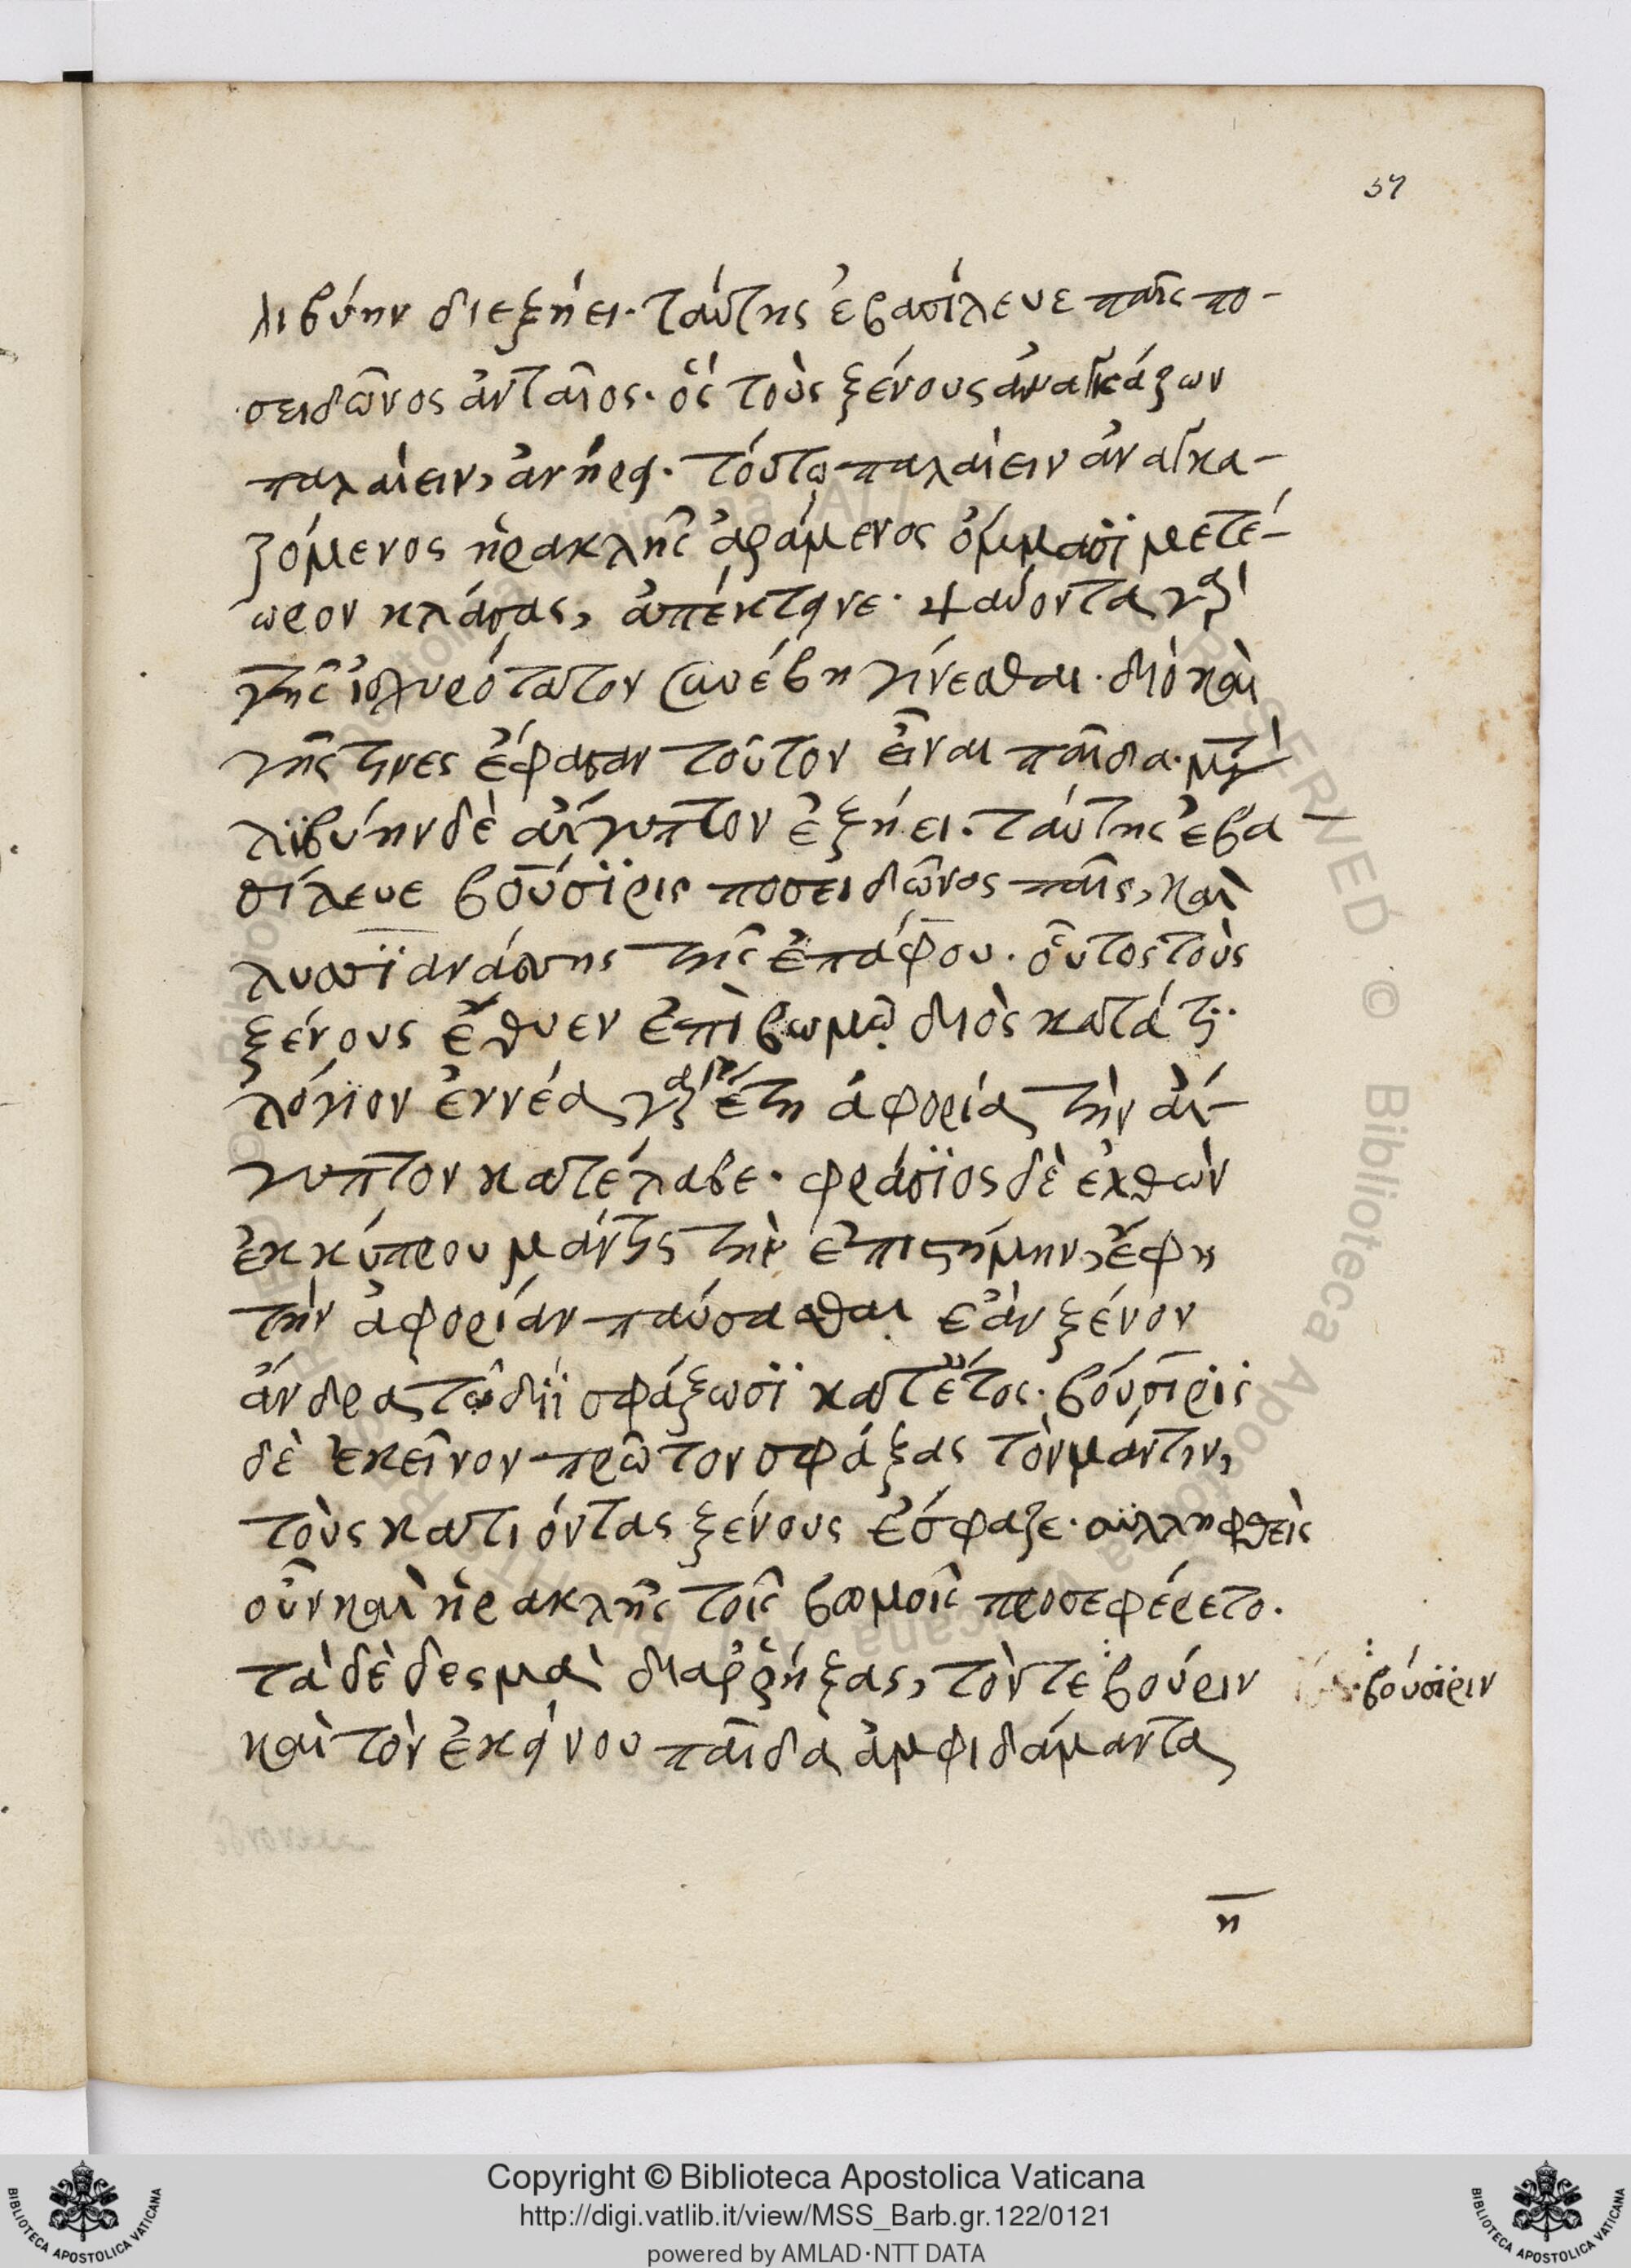 57
λιβύην διεξήει· ταύτης ἐβασίλευε παῖς πο-
σειδῶνος ἀνταῖος· ὃς τοὺς ξένους ἀναγκάζων
παλαίειν, ἀνήρει· τούτω παλαίειν ἀναγκα-
ζόμενος ἡρακλῆς ἀράμενος ὄμμασϊ μετέ-
ωρον κλάσας, ἀπέκτεινε· ψαύοντα γὰρ
γῆς ἰσχυρότατον συνέβη γίνεσθαι· διὸ καὶ
γῆς τινες ἔφασαν τοῦτον εἶναι παῖδα· μετὰ
λϊβύην δὲ αἴγυπτον ἐξήει· ταύτης ἐβα
σίλευε βούσϊρις ποσειδῶνος παῖς, καὶ
λυσϊανάσσης τῆς ἐπάφου· οὗτος τοὺς
ξένους ἔθυεν ἐπὶ βωμῷ διὸς κατά τι
λόγιον ἐννέα γὰρ ἔτη ἀφορία τὴν αἴ-
γυπτον κατέλαβε· φράσϊος δὲ ἐλθὼν
ἐκ κύπρου μάντις τὴν ἐπιστήμην, ἔφη
τὴν ἀφορίαν παύσασθαι ἐὰν ξένον
ἄνδρα τῶ διῒ σφάξωσϊ κατ' ἔτος· βούσιρϊς
δὲ ἐκεῖνον πρῶτον σφάξας τὸν μάντιν,
τοὺς κατιόντας ξένους ἔσφαζε· συλληφθεὶς
οὖν καὶ ἡρακλῆς τοῖς βωμοῖς προσεφέρετο·
τὰ δὲ δεσμὰ διαῤῥήξας, τόν τε βούριν
βούσϊριν
καὶ τὸν ἐκείνου παῖδα ἀμφιδάμαντα
η
Copyright © Biblioteca Apostolica Vaticana
http://digi.vatlib.it/view/MSS_Barb.gr.122/0121
powered by AMLAD·NTT DATA
BIBLIOTECA APOSTOLICA VATICANA
BIBLIOTECA APOSTOLICA VATICANA